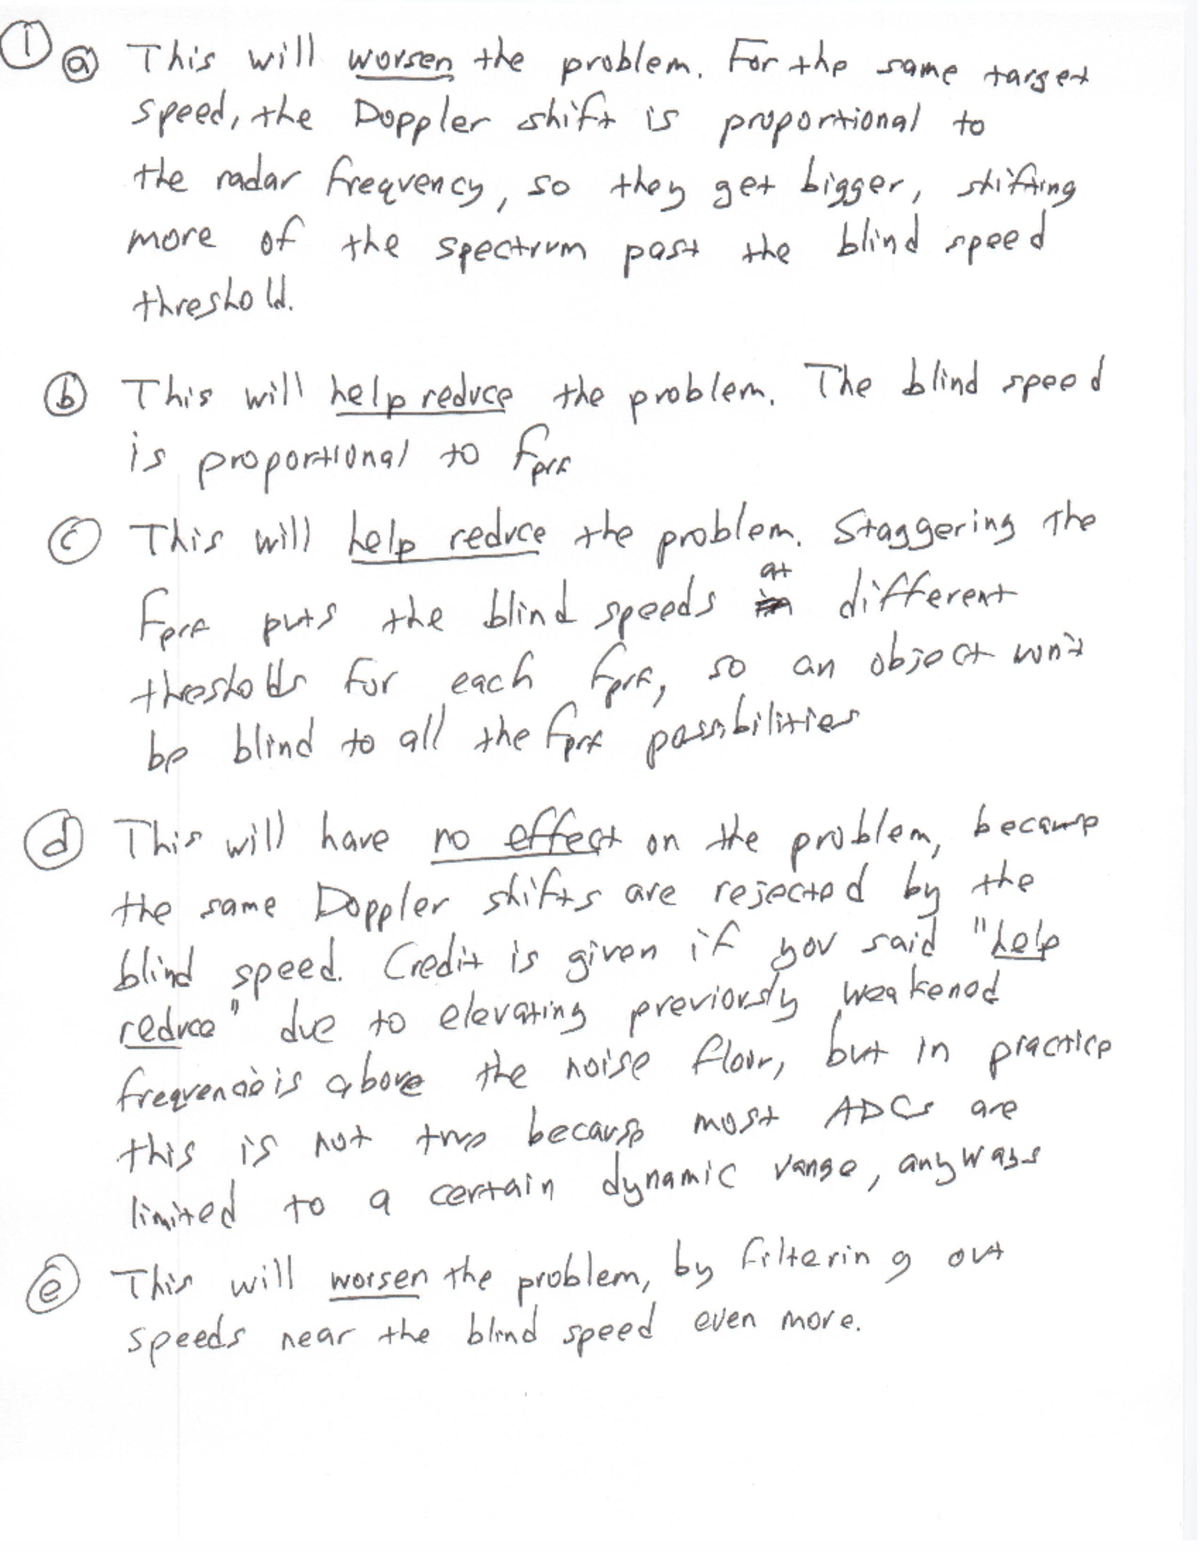 ① ⓐ This will worsen the problem. For the same target
speed, the Doppler shift is proportional to
the radar frequency, so they get bigger, shifting
more of the spectrum past the blind speed
threshold.
ⓑ This will help reduce the problem. The blind speed
is proportional to fprf
ⓒ This will help reduce the problem. Staggering the
fprf puts the blind speeds at different
thresholds for each fprf, so an object won't
be blind to all the fprf possibilities
ⓓ This will have no effect on the problem, because
the same Doppler shifts are rejected by the
blind speed. Credit is given if you said "help
reduce" due to elevating previously weakened
frequencies above the noise floor, but in practice
this is not true because most ADCs are
limited to a certain dynamic range, anyways
ⓔ This will worsen the problem, by filtering out
speeds near the blind speed even more.